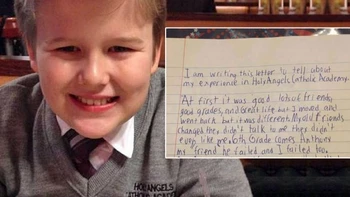 I am writing this letter to tell about
my experience in Holy Angels Catholic Academy.
At first it was good lots of friends,
good grades, and Great life but I moved and
went back but it was different. My old friends
changed they didn't talk to me they didn't
even like me. 6th Grade comes Anthony
my friend he failed and I failed too.
HOLY ANGELS
CATHOLIC ACADEMY